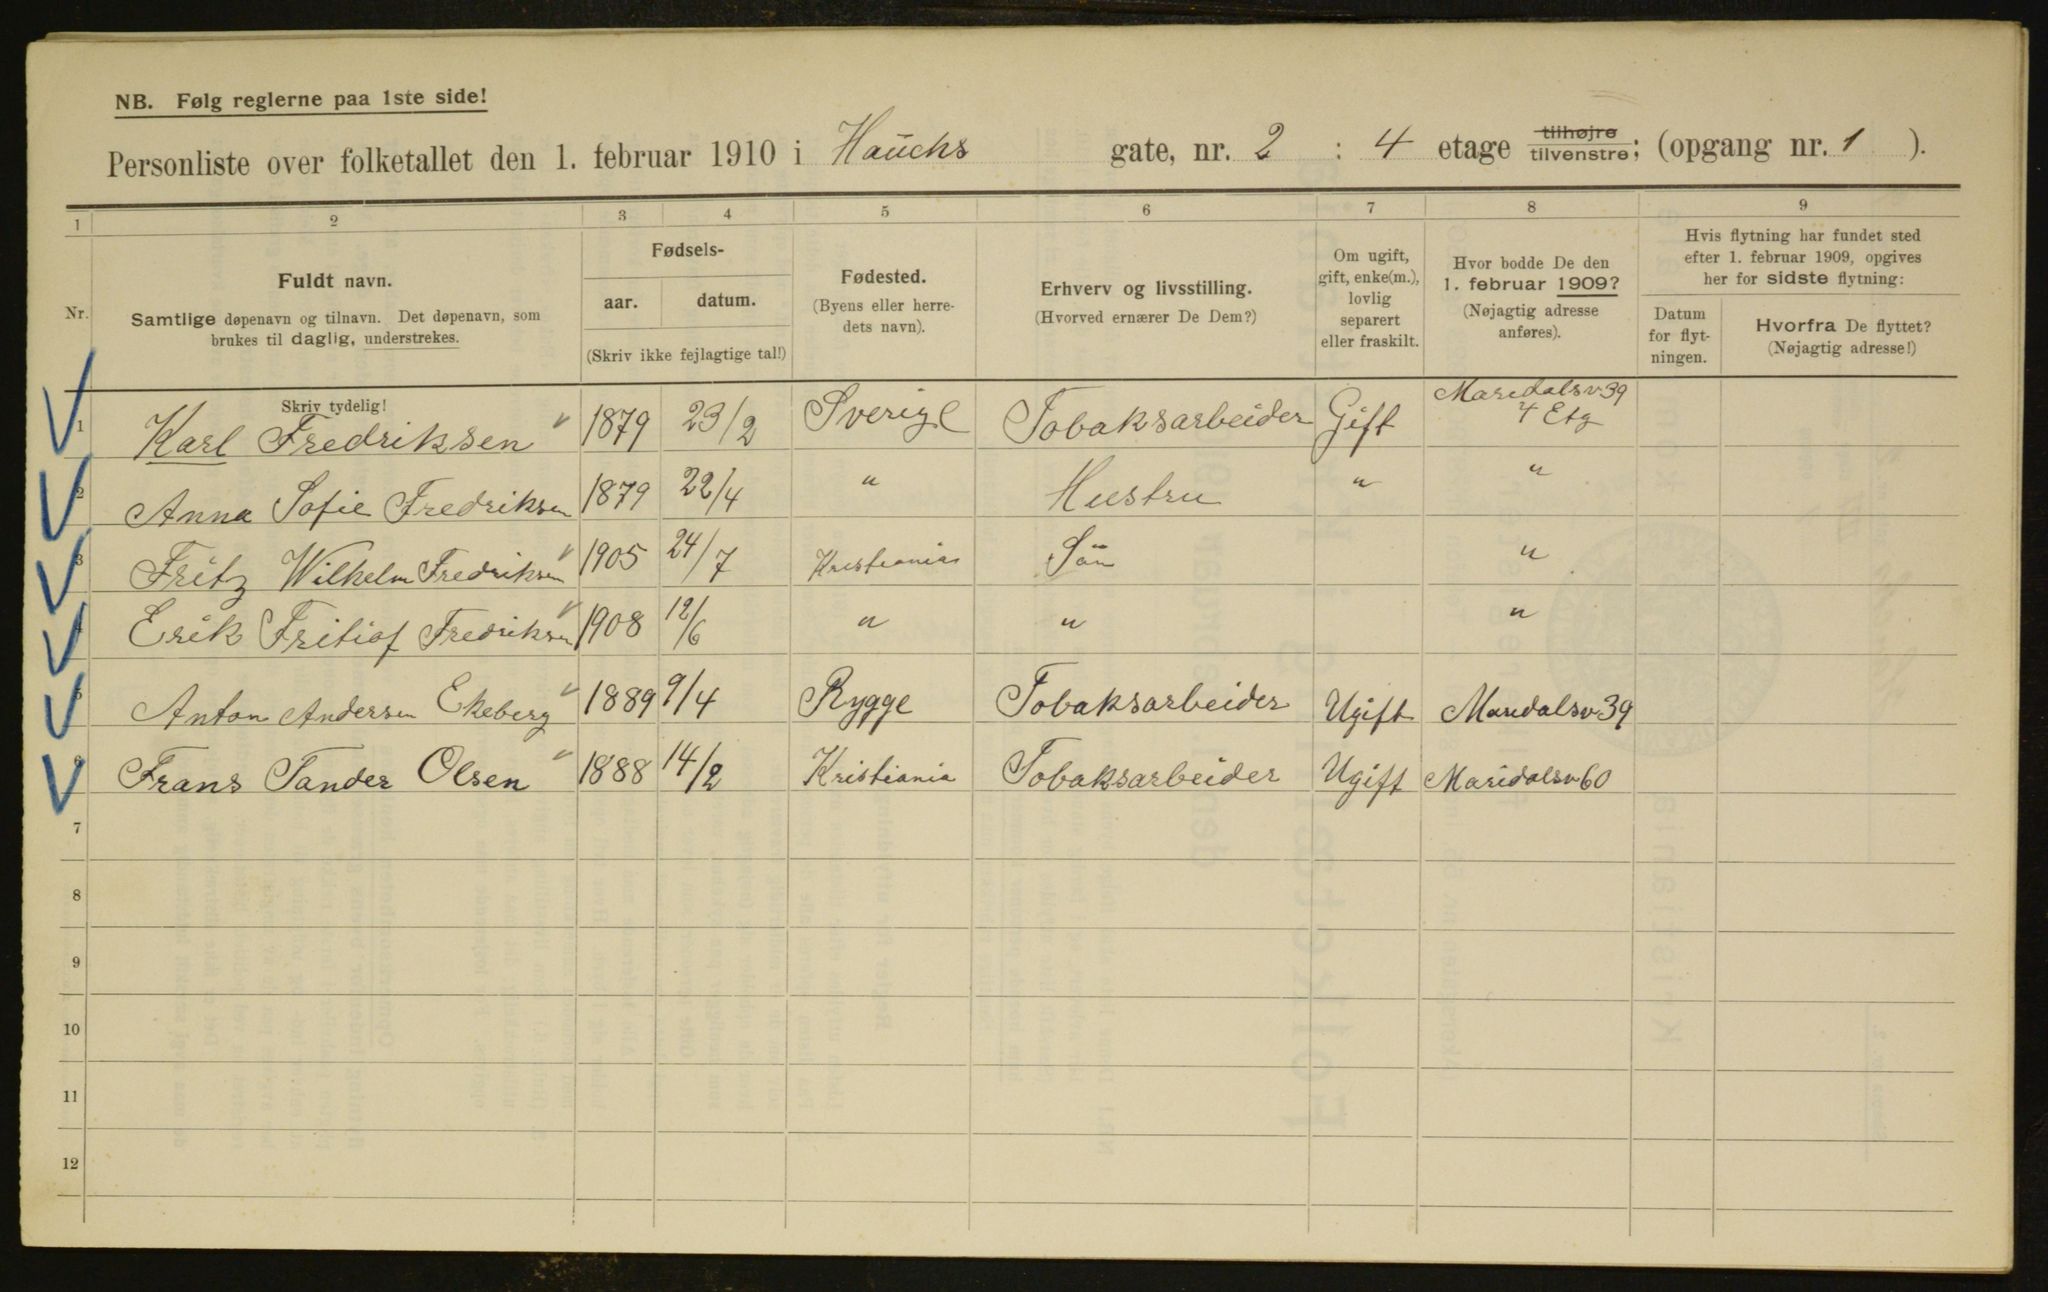 NB. Følg reglerne paa 1ste side!
Personliste over folketallet den 1. februar 1910 i Hauchs gate, nr. 2 : 4 etage tilhøjre tilvenstre; (opgang nr. 1 ).
1 2 3 4 5 6 7 8 9
Nr.
Fuldt navn.
Samtlige døpenavn og tilnavn. Det døpenavn, som
brukes til daglig, understrekes.
Fødsels-
aar. datum.
(Skriv ikke fejlagtige tal!)
Fødested.
(Byens eller herre-
dets navn).
Erhverv og livsstilling.
(Hvorved ernærer De Dem?)
Om ugift,
gift, enke(m.),
lovlig
separert
eller fraskilt.
Hvor bodde De den
1. februar 1909?
(Nøjagtig adresse
anføres).
Hvis flytning har fundet sted
efter 1. februar 1909, opgives
her for sidste flytning:
Datum
for flyt-
ningen.
Hvorfra De flyttet?
(Nøjagtig adresse!)
Skriv tydelig!
1 Karl Fredriksen 1879 23/2 Sverige Tobaksarbeider Gift Maridalsv 39
4 Etg
2 Anna Sofie Fredriksen 1879 22/4 " Hustru " "
3 Fritz Wilhelm Fredriksen 1905 24/7 Kristiania Sön "
4 Erik Fritiof Fredriksen 1908 12/6 " " "
5 Anton Andersen Ekeberg 1889 9/4 Rygge Tobaksarbeider Ugift Maridalsv 39
6 Frans Tander Olsen 1888 14/2 Kristiania Tobaksarbeider Ugift Maridalsv 60
7
8
9
10
11
12